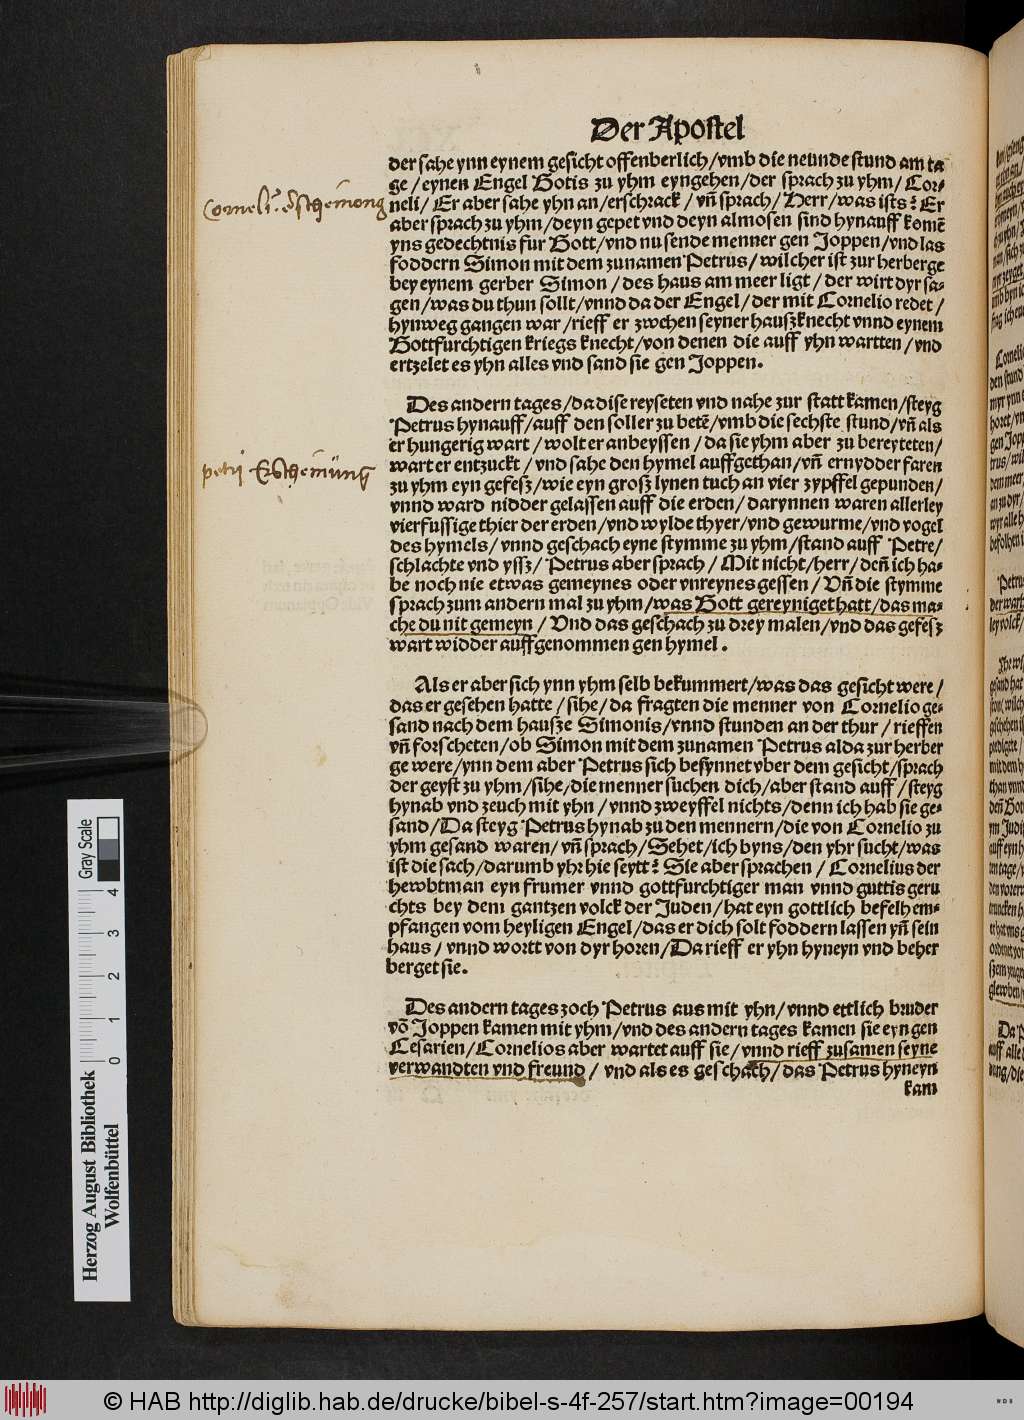 Der Apostel
der sahe ynn eynem gesicht offenberlich/vmb die neunde stund am ta
ge/eynen Engel Gotis zu yhm eyngehen/der sprach zu yhm/Cor-
neli/Er aber sahe yhn an/erschrack/vñ sprach/Herr/was ists? Er
aber sprach zu yhm/deyn gepet vnd deyn almosen sind hynauff komē
yns gedechtnis fur Gott/vnd nu sende menner gen Joppen/vnd las
foddern Simon mit dem zunamen Petrus/wilcher ist zur herberge
bey eynem gerber Simon/des haus am meer ligt/der wirt dyr sa-
gen/was du thun sollt/vnnd da der Engel/der mit Cornelio redet/
hynweg gangen war/rieff er zwehen seyner hauszknecht vnnd eynem
Gottfurchtigen kriegs knecht/von denen die auff yhn wartten/vnd
ertzelet es yhn alles vnd sand sie gen Joppen.
Corneli? Escheinong
Des andern tages/da dise reyseten vnd nahe zur statt kamen/steyg
Petrus hynauff/auff den soller zu betē/vmb die sechste stund/vñ als
er hungerig wart/wolt er anbeyssen/da sie yhm aber zu bereyteten/
wart er entzuckt/vnd sahe den hymel auffgethan/vñ ernydder faren
zu yhm eyn gefesz/wie eyn grosz lynen tuch an vier zypffel gepunden/
vnnd ward nidder gelassen auff die erden/darynnen waren allerley
vierfussige thier der erden/vnd wylde thyer/vnd gewurme/vnd vogel
des hymels/vnnd geschach eyne stymme zu yhm/stand auff Petre/
schlachte vnd yssz/Petrus aber sprach/Mit nicht/herr/deñ ich ha-
be noch nie etwas gemeynes oder vnreynes gessen/Vñ die stymme
sprach zum andern mal zu yhm/was Gott gereyniget hatt/das ma-
che du nit gemeyn/Vnd das geschach zu drey malen/vnd das gefesz
wart widder auffgenommen gen hymel.
petrj Erscheinüng
Als er aber sich ynn yhm selb bekummert/was das gesicht were/
das er gesehen hatte/sihe/da fragten die menner von Cornelio ge-
sand nach dem hausze Simonis/vnnd stunden an der thur/rieffen
vñ forscheten/ob Simon mit dem zunamen Petrus alda zur herber
ge were/ynn dem aber Petrus sich besynnet vber dem gesicht/sprach
der geyst zu yhm/sihe/die menner suchen dich/aber stand auff/steyg
hynab vnd zeuch mit yhn/vnnd zweyffel nichts/denn ich hab sie ge-
sand/Da steyg Petrus hynab zu den mennern/die von Cornelio zu
yhm gesand waren/vñ sprach/Sehet/ich byns/den yhr sucht/was
ist die sach/darumb yhr hie seytt? Sie aber sprachen/Cornelius der
hewbtman eyn frumer vnnd gottfurchtiger man vnnd guttis geru
chts bey dem gantzen volck der Juden/hat eyn gottlich befelh em-
pfangen vom heyligen Engel/das er dich solt foddern lassen yñ sein
haus/vnnd wortt von dyr horen/Da rieff er yhn hyneyn vnd beher
berget sie.
Des andern tages zoch Petrus aus mit yhn/vnnd ettlich bruder
võ Joppen kamen mit yhm/vnd des andern tages kamen sie eyn gen
Cesarien/Cornelios aber wartet auff sie/vnnd rieff zusamen seyne
verwandten vnd freund/vnd als es geschach/das Petrus hyneyn
kam
Herzog August Bibliothek
Wolfenbüttel
0 1 2 3 4
Gray Scale
© HAB http://diglib.hab.de/drucke/bibel-s-4f-257/start.htm?image=00194